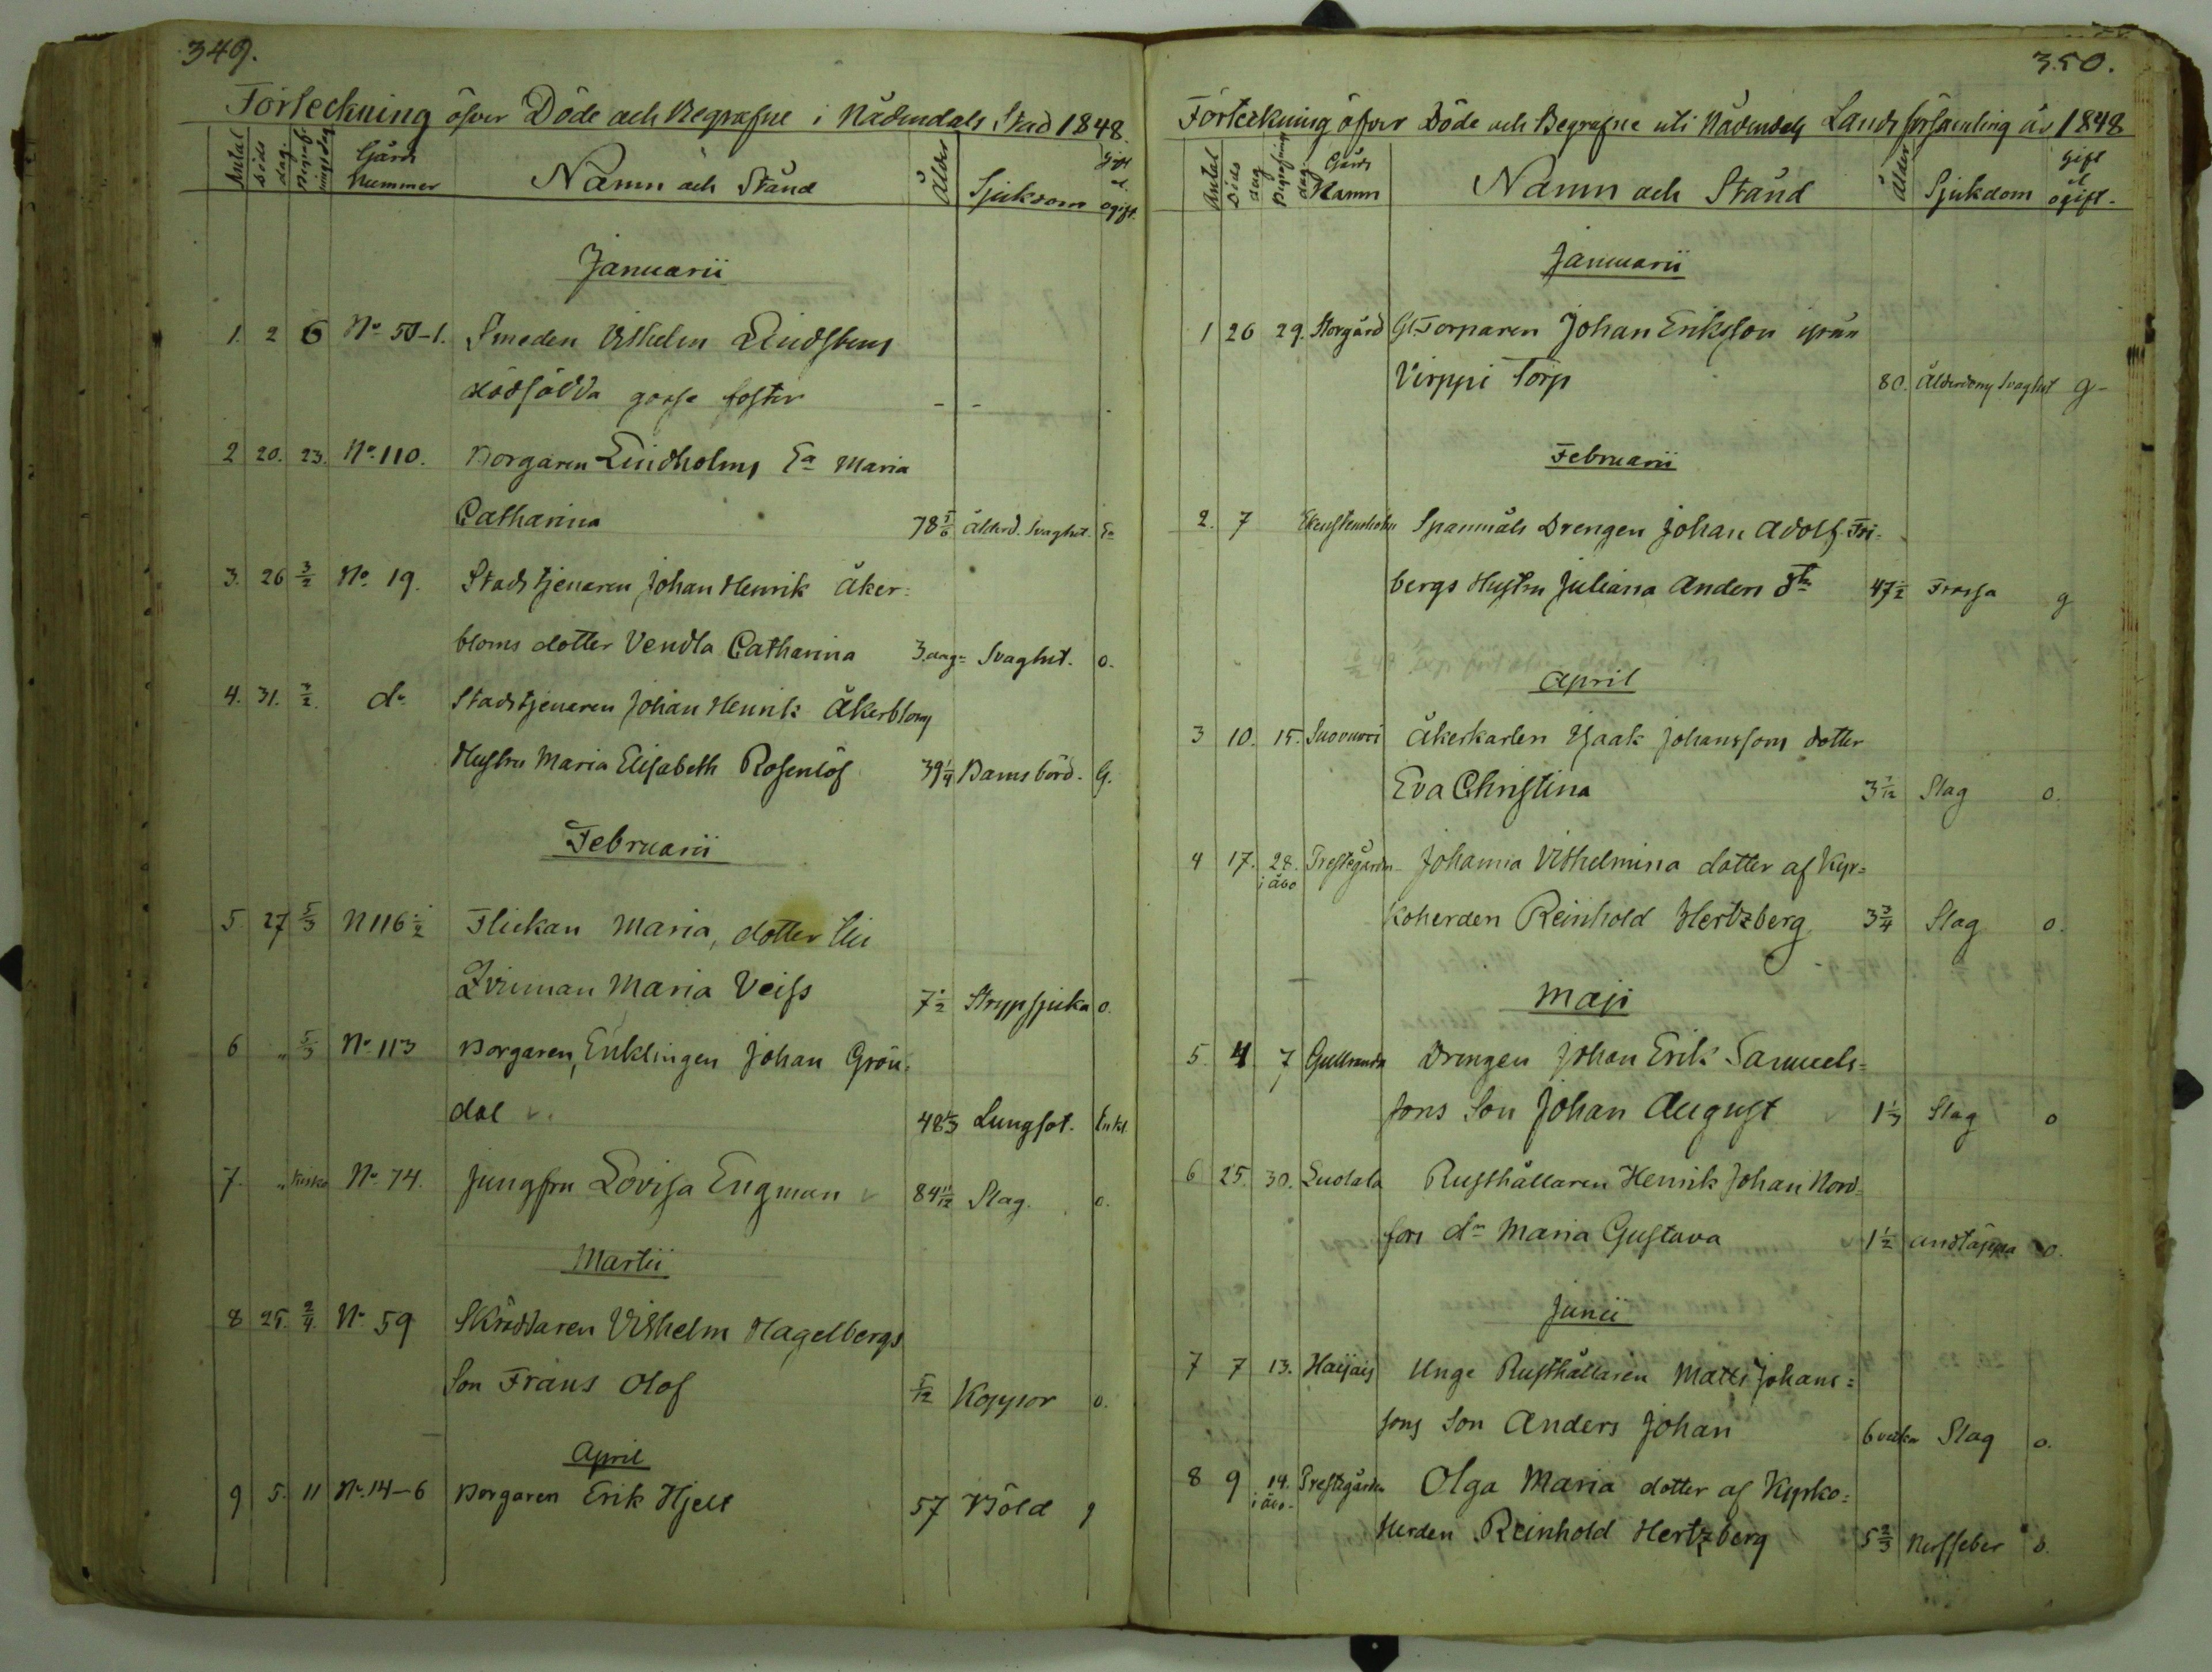 349.
Förteckning öfver Döde och Begrafne i Nådendals Stad 1848.
Antal Döds dag. Begrafnings dag Gårds Nummer Namn och Stånd Ålder Sjukdom Gift el ogift.
Januarii
1. 2 6 No 50-1. Smeden Vilhelm Lindstens
dödfödda gosse foster - - -
2 20. 23. No 110. Borgaren Lindholms Ea Maria
Catharina 78 5/6 Ålderd. Svaghet. Ea
3. 26 3/2 No 19. Stads tjenaren Johan Henrik Åker=
bloms dotter Vendla Catharina 3. dag= Svaghet. o.
4. 31. 3/2. do Stadstjenaren Johan Henrik Åkerbloms
Hustru Maria Elisabeth Rosenlöf 39 1/4 Barnsbörd. G.
Februarii
5. 27 5/3 N 116 1/2 Flickan Maria, dotter till
Maria Veiss 7 1/2 Strypsjuka o.
6 " 5/3 No 113 Borgaren, Enklingen Johan Grön=
dal 48 1/3 Lungsot. Enkl.
7. " No 74. Jungfru Lovisa Engman 84 11/12 Slag. o.
Martii
8 25. 2/4. No 59 Skräddaren Vilhelm Hagelbergs
Son Frans Olof 5/12 Koppor o.
April
9 5. 11 No 14-6 Borgaren Erik Hjelt 57 Böld g
350.
Förteckning öfver Döde och Begrafne uti Nådendals Landsförsamling år 1848
Antal Döds dag Begrafnings dag Gårds Namn Namn och Stånd Ålder Sjukdom Gift el ogift.
Januarii
1 26 29. Storgård Gl. Torparen Johan Eriksson ifrån
Virppi Torp 80. Ålderdoms Svaghet g-
Februarii
2. 7 Ekenstensholm Spanmåls Drengen Johan Adolf Fri=
bergs Hustru Juliana Anders dtr 47 1/2 Frossa g
April
3 10. 15. Suovuori Åkerkarlen Isaak Johanssons dotter
Eva Christina 3 1/12 Slag o.
4 17. 28. i Åbo Prestegården Johanna Vilhelmina dotter af Kyr=
koherden Reinhold Hertzberg 3 3/4 Slag o.
Maji
5. 4 7 Gullranda Drengen Johan Erik Samuels=
sons Son Johan August 1 1/3 Slag o
6 25. 30. Luolala Rusthållaren Henrik Johan Nord=
fors dr Maria Gustava 1 1/2 andtäppa o.
Junii
7 7 13. Haijais Unge Rusthållaren Matts Johans=
sons Son Anders Johan 6 veckor Slag o.
8 9 14. i Åbo. Prestegården Olga Maria dotter af Kyrko=
Herden Reinhold Hertzberg 5 2/3 Nerffeber o.